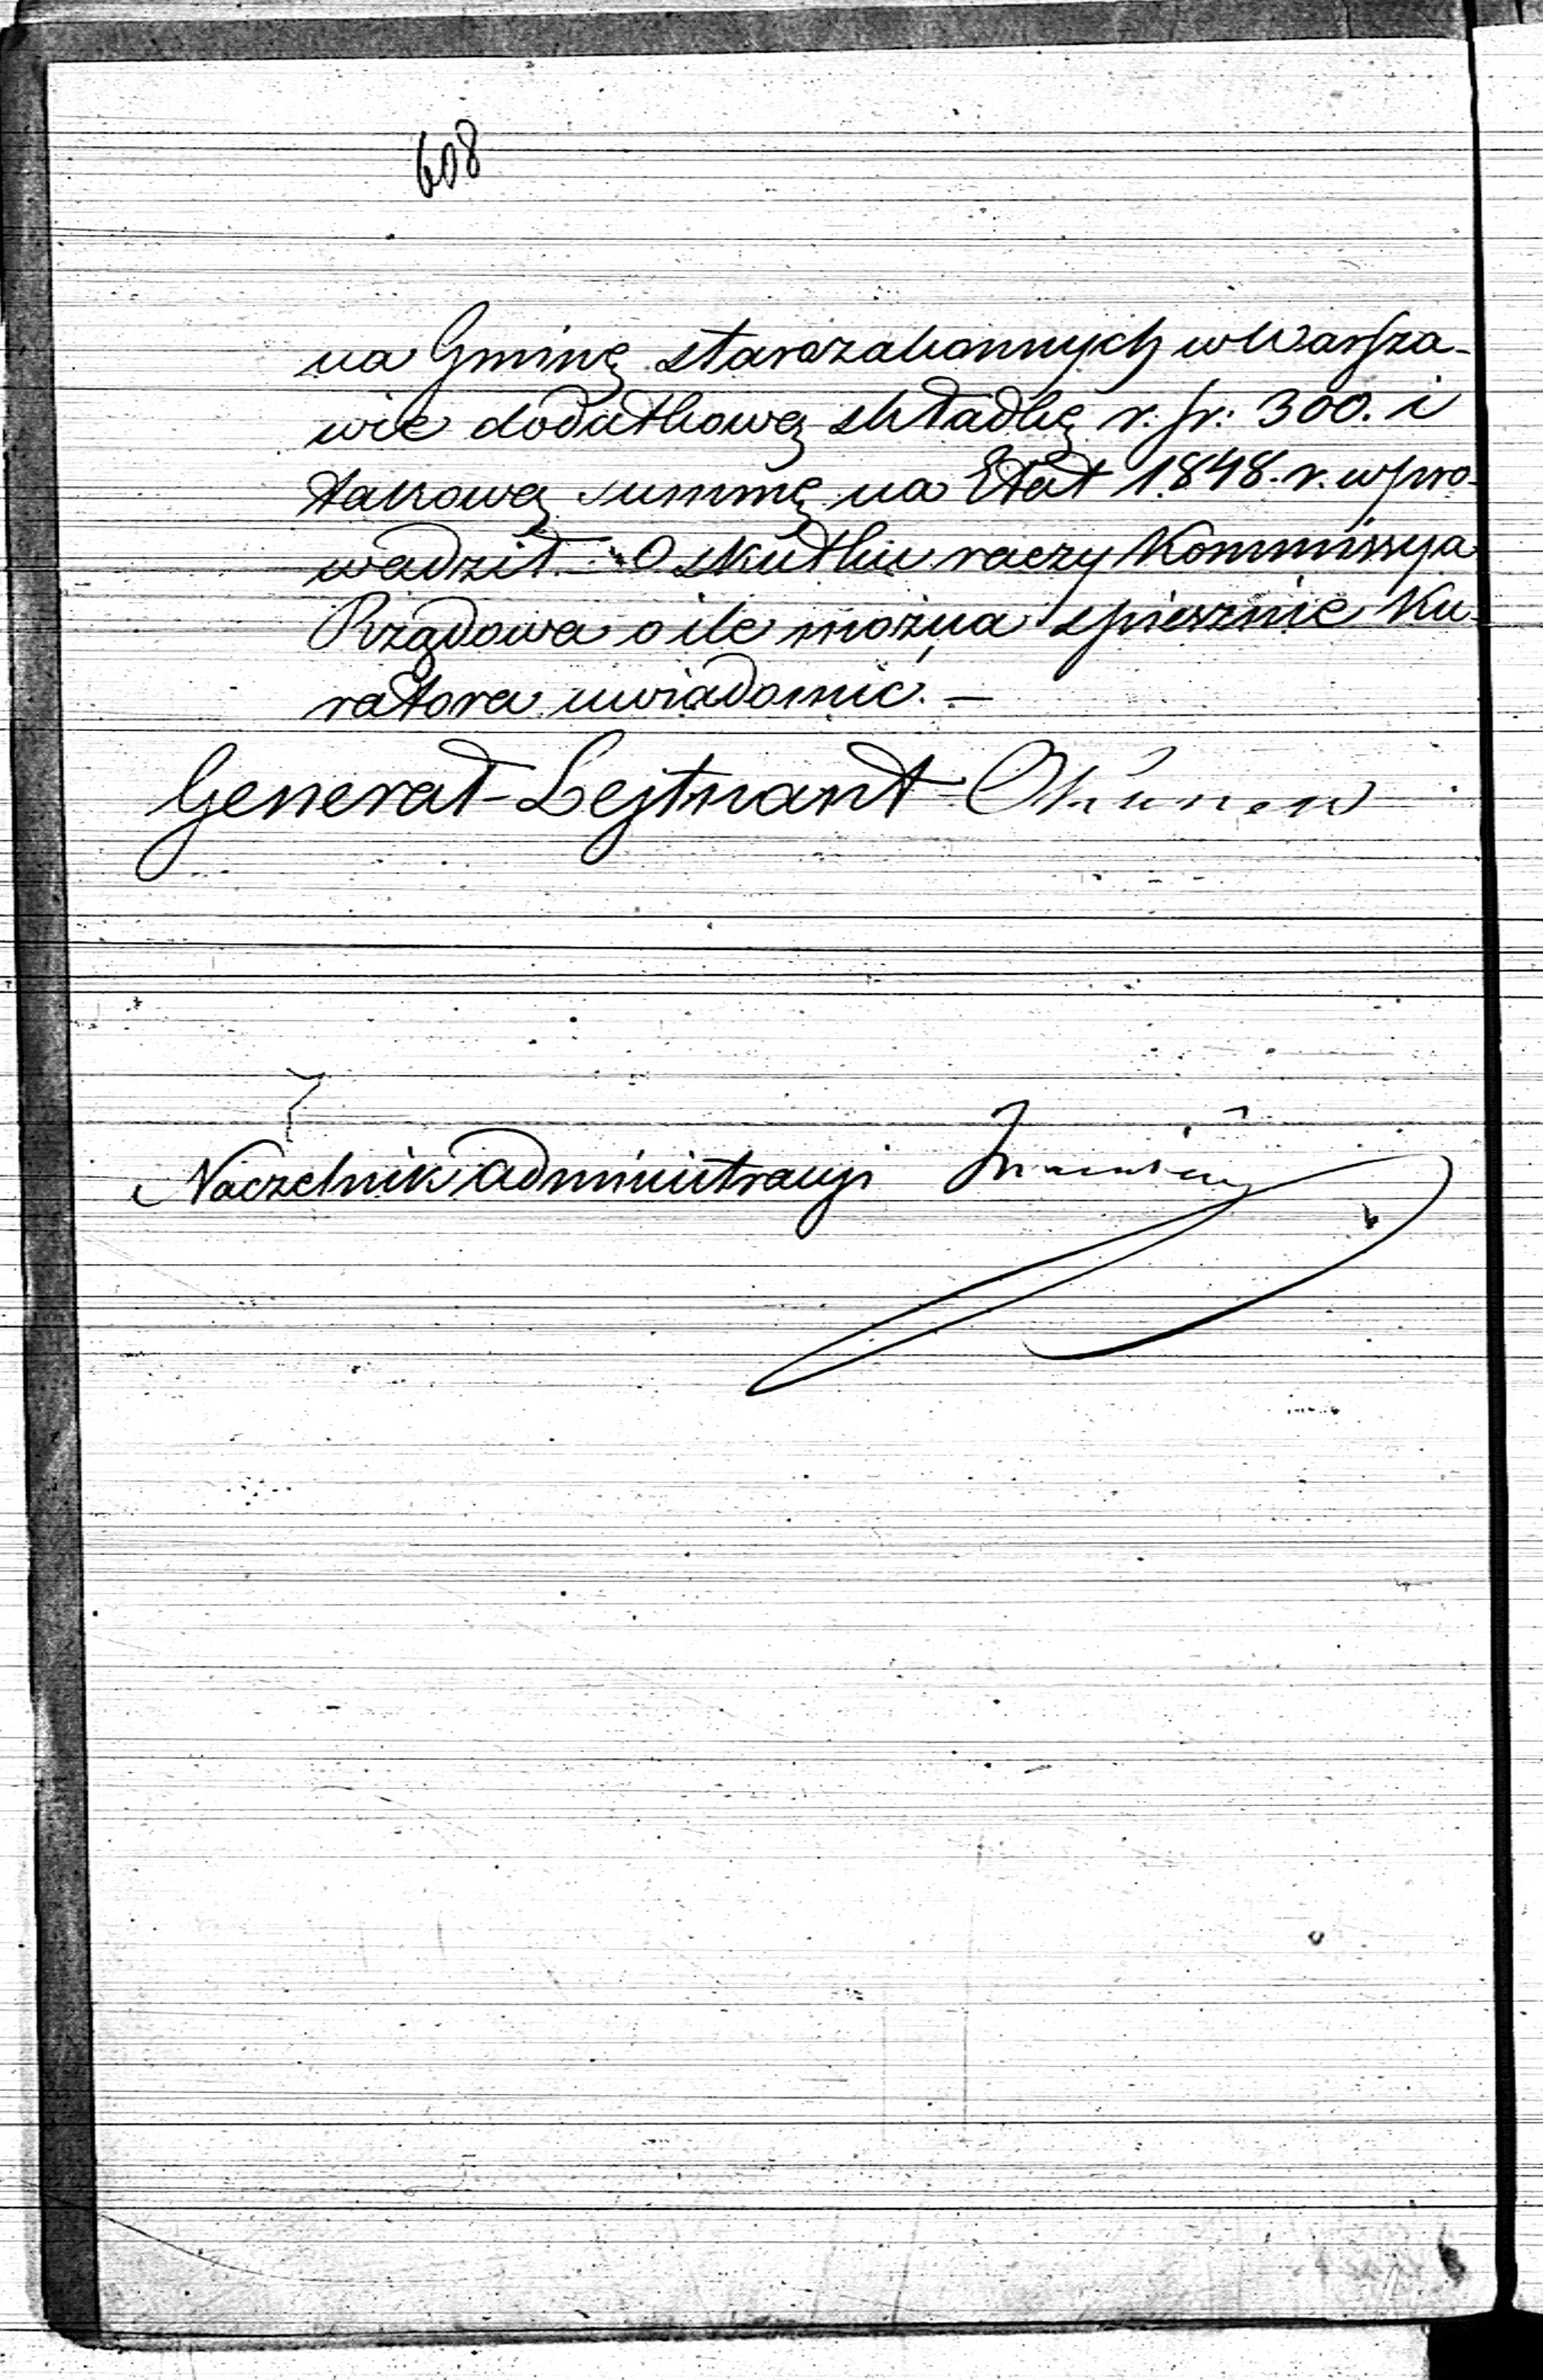 608
na Gminę starozakonnych w Warsza-
wie dodatkową składkę r. sr: 300. i
takową summę na Etat 1848. r. wpro-
wadził. – O skutku raczy Kommissya
Rządowa o ile można spiesznie Ku-
ratora uwiadomić. –
Generał-Lejtnant Okunew
Naczelnik Administracyi